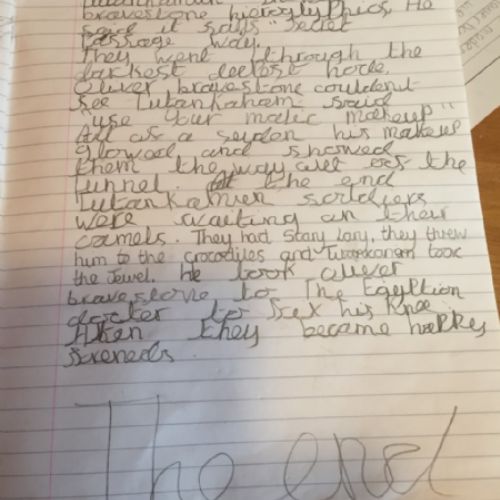 bravestone hieroglyphics, He
said it says "secret
Passage way.
They went through the
darkest deepest hole.
Oliver bravestone couldent
see Tutankaham said
"use your majic makeup"
All of a suden his makeup
glowed and showed
them the way out of the
tunnel. at the end
Tutankamun soldiers
were waiting on their
camels. They had Scary Lary, they threw
him to the crocodiles and Tutankanam took
the Jewel. he took oliver
bravestone to The Egyption
docter to fix his Knee.
Then they became happy
freneds
The end